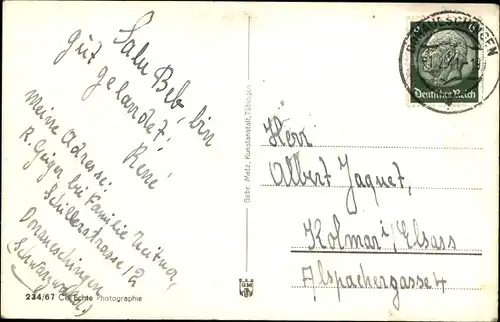 Salu Beb, bin
gut gelandet!
René
meine Adresse:
R. Geiger bei Familie
Schillerstrasse 12
Donaueschingen
(Schwarzwald)
234/67 Echte Photographie
Gebr. Metz, Kunstanstalt, Tübingen
DONAUESCHINGEN
Deutsches Reich
Herr
Albert Jaquet,
Kolmar/Elsass
Alspachergasse 4